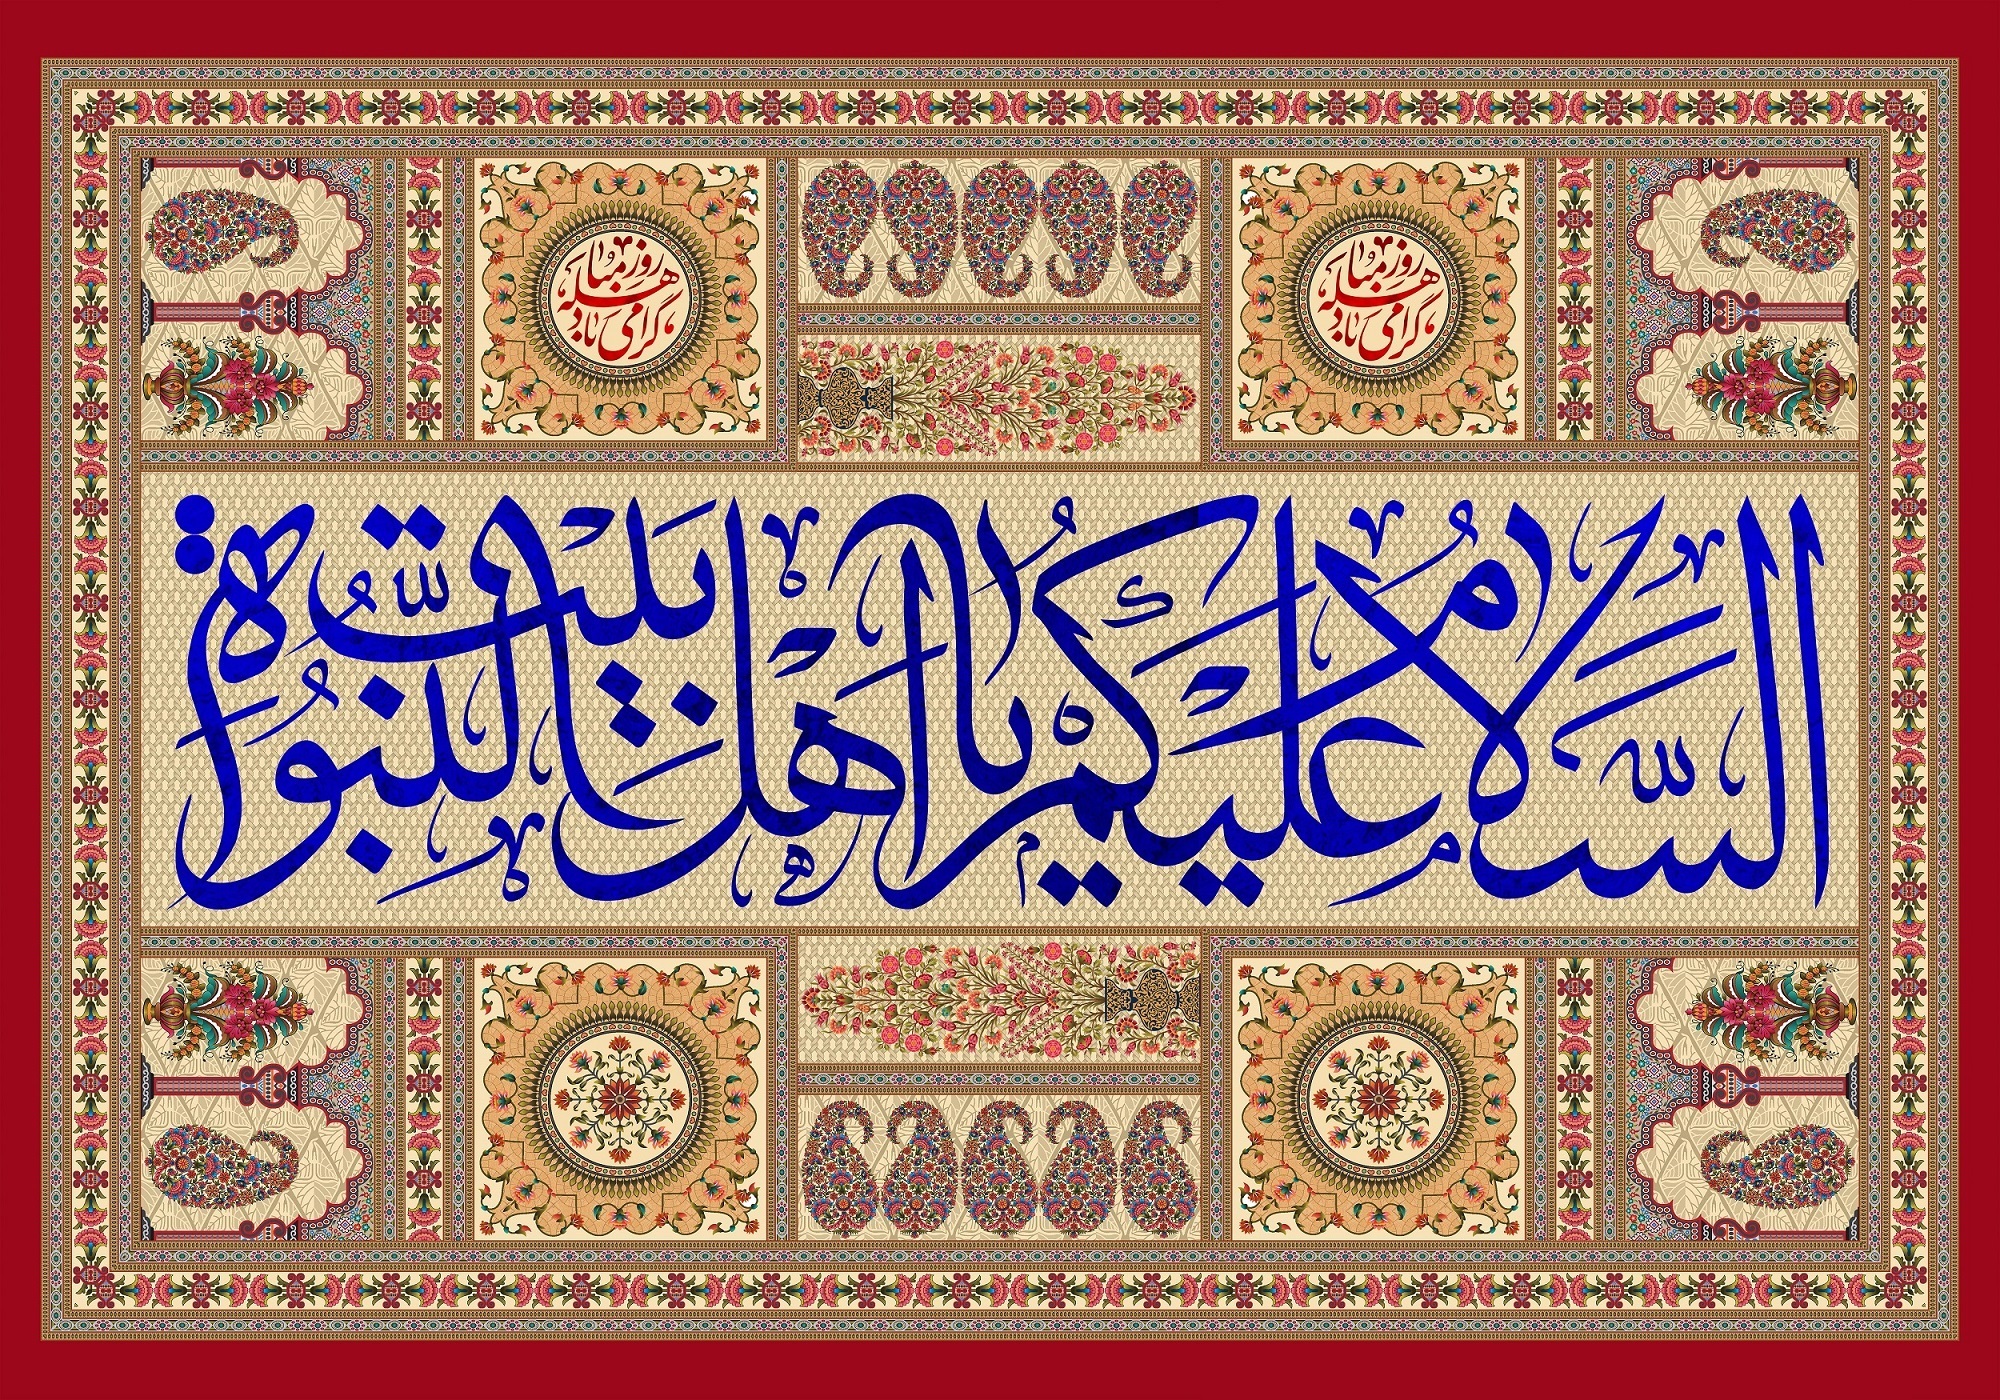 روز مباهله
گرامی باد
روز مباهله
گرامی باد
السَّلامُ عَلَيْكُمْ يا اَهْلَ بَيْتِ النُّبُوَّةِ